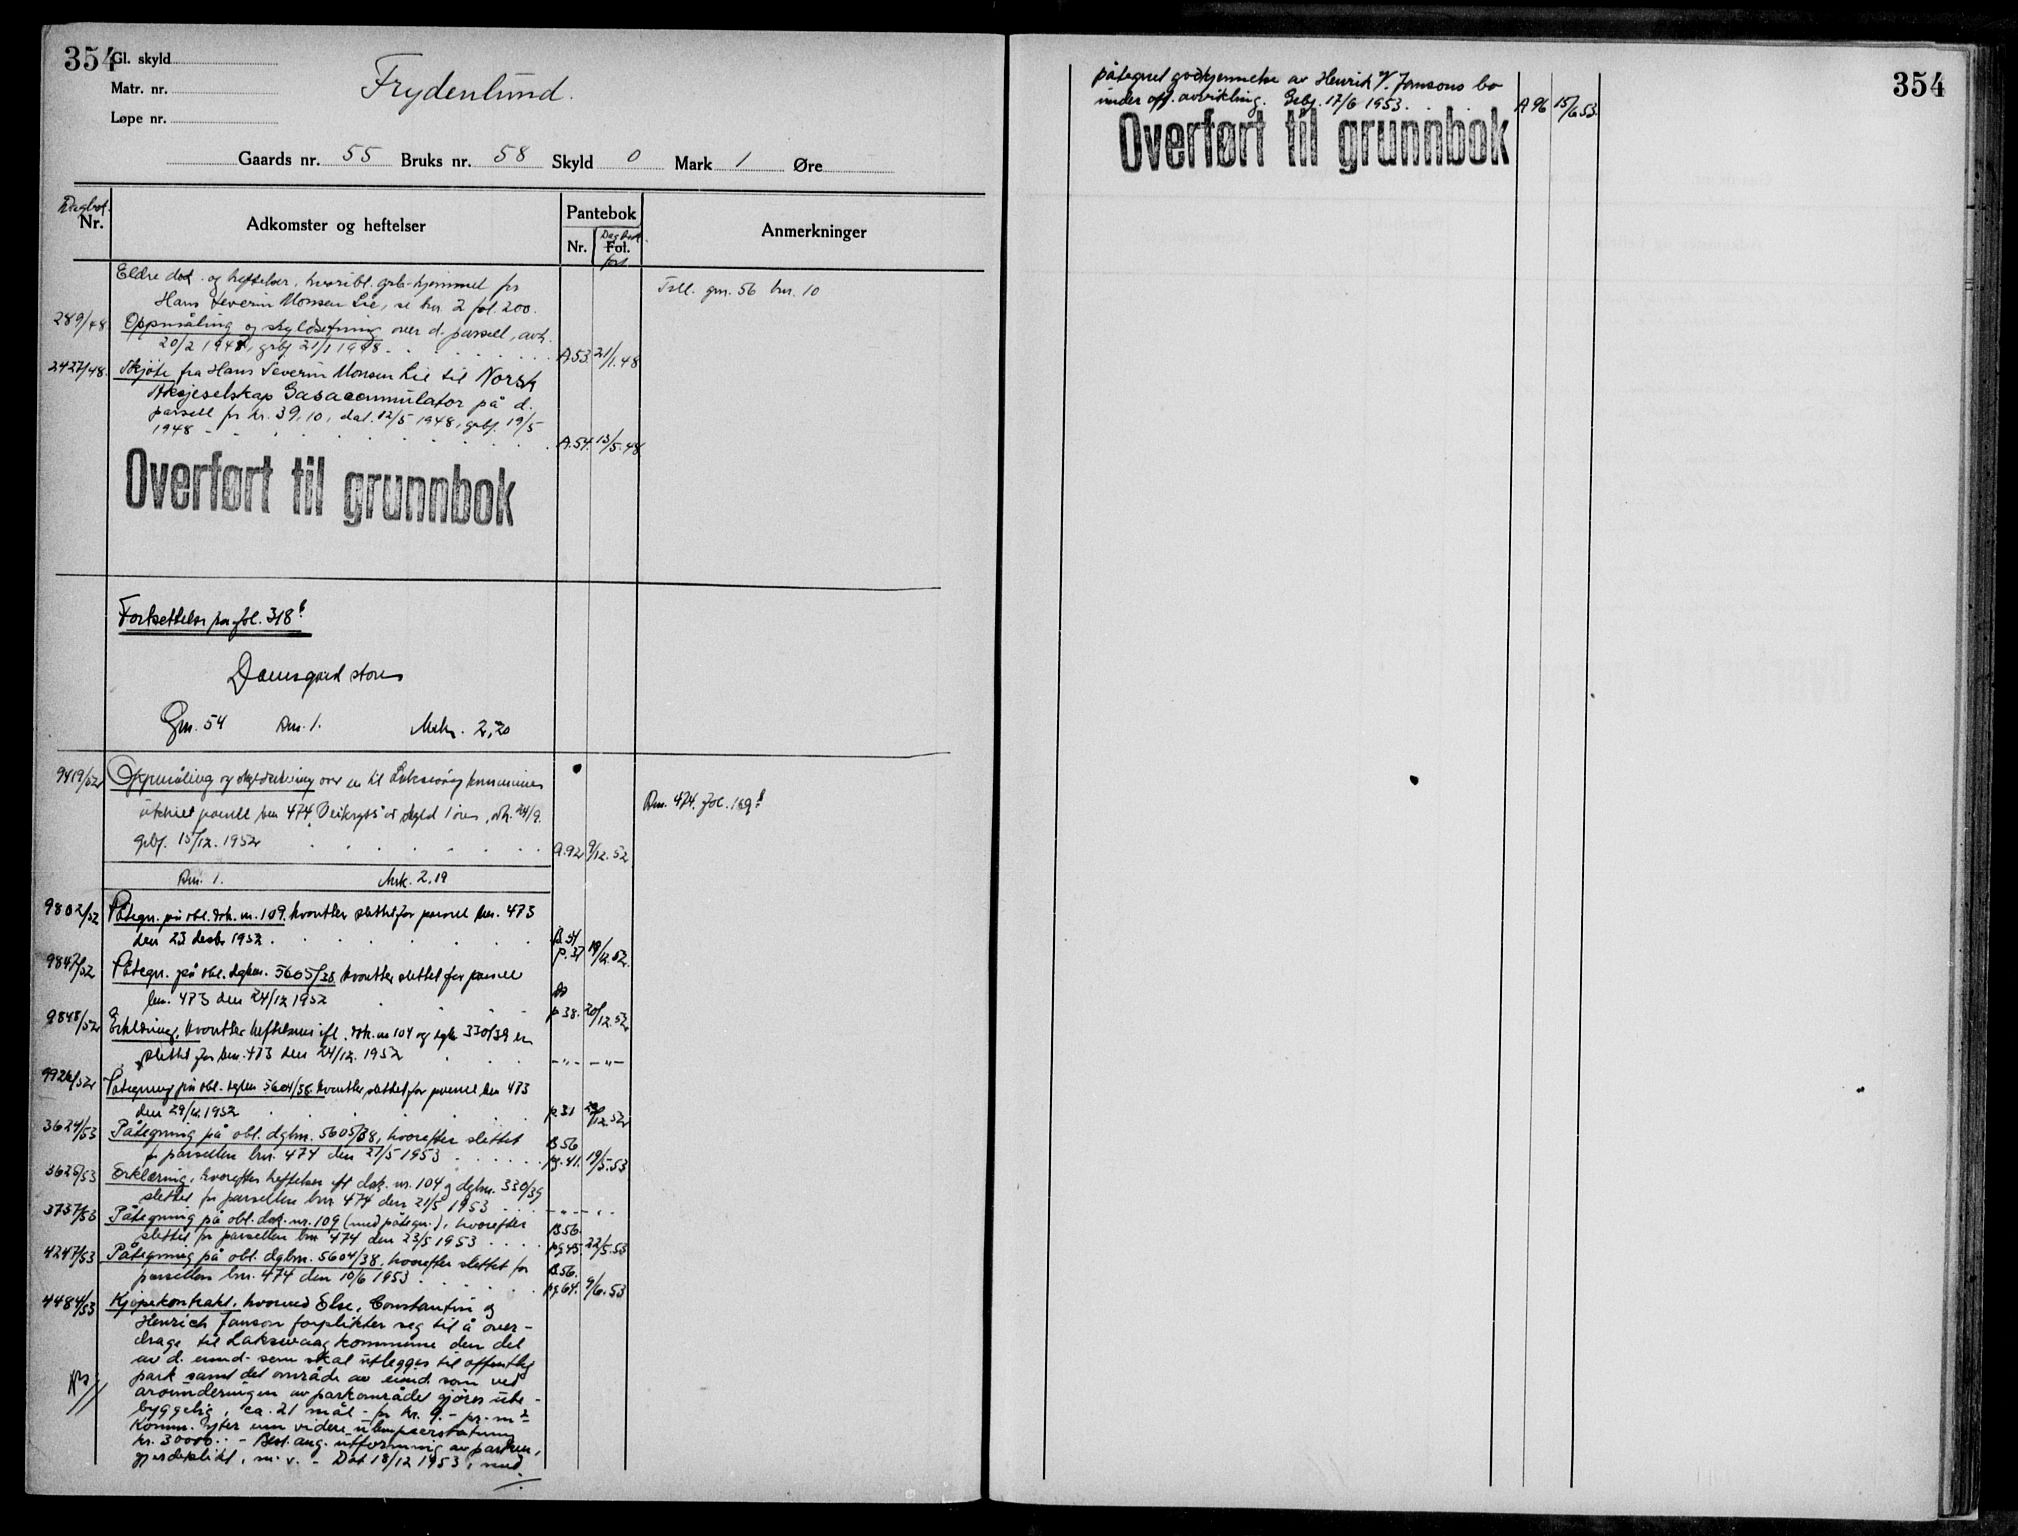 354
Gl. skyld
Matr. nr.
Løpe nr.
Frydenlund.
Gaards nr. 55 Bruks nr. 58 Skyld 0 Mark 1 Øre
Dagbok
Nr.
Adkomster og heftelser
Pantebok
Nr.
Fol.
Anmerkninger
Eldre dok. og heftelser, hvoribl. grb. hjemmel for
Hans Severin Monsen Lie, se bn. 2 fol. 200.
Till. gnr. 56 bnr. 10
289/48. Oppmåling og skyldsetning over d. parsell, avh.
20/2 1947, grbf 21/1 1948 A53. 21/1.48
2427/48. Skjøte fra Hans Severin Monsen Lie til Norsk
Aksjeselskap Gasaccumulator på d.
parsell for kr. 39,10, dat. 12/5 1948, grbf. 19/5
1948 A.54. 13/5.48.
Overført til grunnbok
Fortsettelse fra fol. 318b
Damsgård store
Gnr. 54 Bnr. 1. Mrk. 2,20
9419/52 Oppmåling og skyldsetning over en til Laksevåg kommune
utskilt parsell bnr 474 "Veikryss" av skyld 1 øre, avh. 24/9.
Grbf. 15/12. 1952 A.92 9/12.52
Bnr. 474. fol. 169b
Bnr. 1. Mrk. 2,19
9802/52 Påtegn. på obl. dok. nr. 109. hvoretter slettet for parsell bnr. 473
den 23 desbr 1952. B.54 p.37 19/12.52.
9847/52 Påtegn. på obl. dgbnr. 5605/38 hvoretter slettet for parsell
bnr. 473 den 24/12 1952 do p 38. 20/12.52
9848/52 Erklæring, hvoretter heftelsene ifl. dok. nr 104 og dgbnr 330/39 er
slettet for bnr. 473 den 24/12. 1952 -"- -"-
9926/52 Påtegning på obl. dgbnr 5604/38 hvoretter slettet for parsell bnr 473
den 29/12.1952 p.51 12.52
3624/53 Påtegning på obl. dgbnr. 5605/38, hvoretter slettet
f. parsellen bnr. 474 den 21/5 1953 B 56 pg. 41. 19/5.53
3625/53 Erklæring, hvoretter heftelser ifl. dok. nr. 104 og dgbnr. 330/39
slettet for parsellen bnr 474 den 21/5 1953 -"- -"-
3737/53 Påtegning på obl. dok. nr. 109 (med påtegn.), hvoretter
slettet for parsellen bnr 474 den 23/5 1953 B56. pg45. 22/5.53
4247/53 Påtegning på obl. dgbnr. 5604/38, hvoretter slettet for
parsellen bnr. 474 den 10/6 1953. B.56. pg64. 9/6.53
4484/53 Kjøpekontrakt, hvorved Else, Constantin og
Henrich Janson forplikter seg til å over-
drage til Laksevaag kommune den del
av d. eiend. som skal utlegges til offentlig
park samt det område av eiend. som ved
arronderingen av parkområdet gjøres ube-
byggelig, ca. 21 mål - for kr. 9.- pr. m2
Komm. yter enn videre ulempeerstatning
kr. 30000.- - Best. ang. utforming av parken,
gjerdeplikt, m. v. - Dat 18/12 1953, med
354
påtegnet godkjennelse av Henrik V. Jansons bo
under off. avvikling. Grbf. 17/6 1953. A 96 15/6.53.
Overført til grunnbok